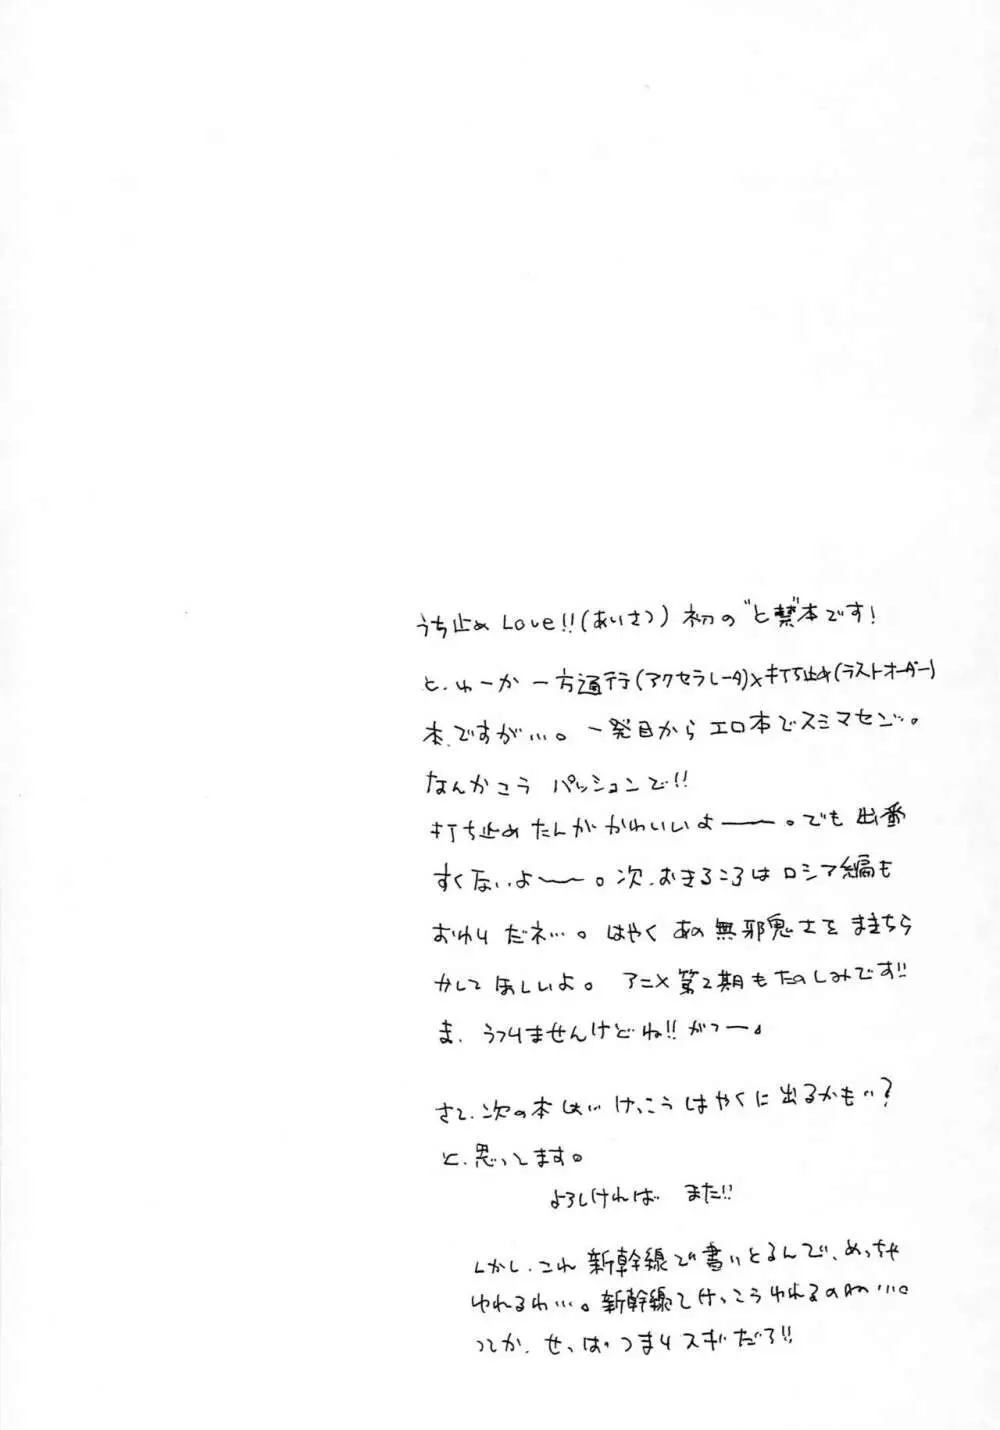 うち止めLove!!(あいさつ) 初の"と禁"本です!
と、ゆーか 一方通行(アクセラレータ)×打ち止め(ラストオーダー)
本、ですが…。一発目から エロ本でスミマセン…。
なんかこう パッションで!!
打ち止めたんが かわいいよ〜〜。でも 出番
すくないよ〜〜。次、おきるころは ロシア編も
おわり だネ…。はやく あの 無邪鬼さを まきちら
かして ほしいよ。 アニメ 第2期も たのしみです!!
ま、うつりませんけどね!!がつー。
さて、次の本は、けっこう はやくに 出るかも…?
と、思ってます。
よろしければ また!!
しかし、これ 新幹線で 書いとるんで、めっちゃ
ゆれるわ…。新幹線て けっこう ゆれるのね…。
つてか、せっぱ・つまり スギだろ!!